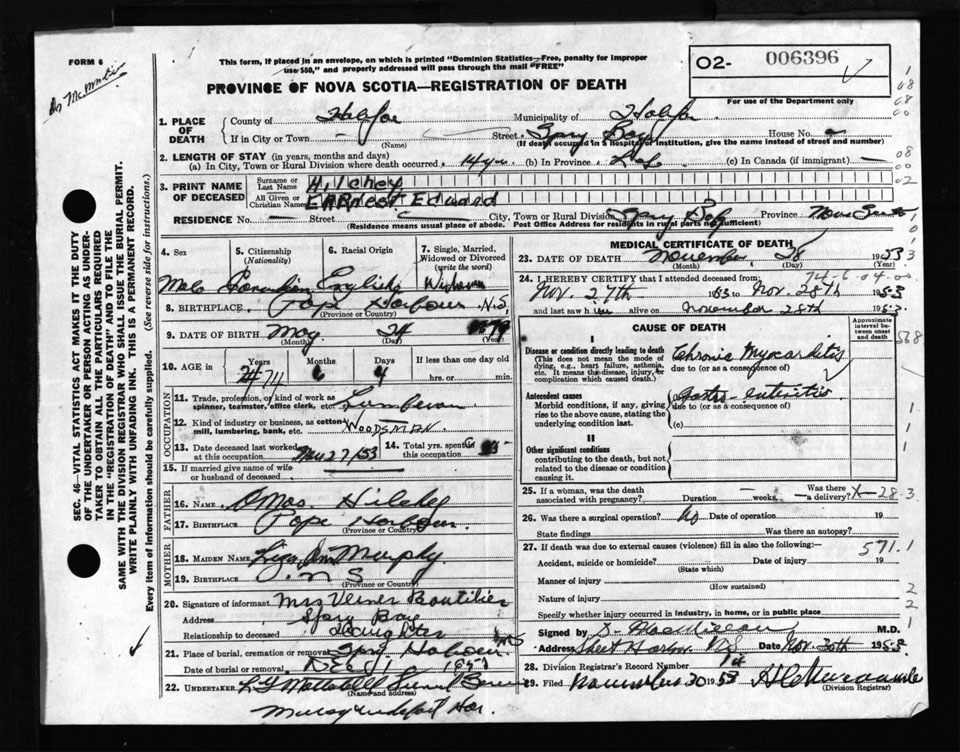 FORM 6
This form, if placed in an envelope, on which is printed "Dominion Statistics—Free, penalty for improper
use $50," and properly addressed will pass through the mail "FREE"
02- 006396
For use of the Department only
PROVINCE OF NOVA SCOTIA—REGISTRATION OF DEATH
1. PLACE OF DEATH
County of Halifax Municipality of Halifax
If in City or Town – Street Spry Bay House No.
(Name) (If death occurred in a hospital or institution, give the name instead of street and number)
2. LENGTH OF STAY (in years, months and days)
(a) In City, Town or Rural Division where death occurred 14 yrs (b) In Province (c) In Canada (if immigrant) —
3. PRINT NAME OF DECEASED
Surname or Last Name Hilchey
All Given or Christian Names Earnest Edward
RESIDENCE No. — Street City, Town or Rural Division Spry Bay Province Nova Scotia
(Residence means usual place of abode. Post Office Address for residents in rural parts not sufficient)
4. Sex 5. Citizenship (Nationality) 6. Racial Origin 7. Single, Married, Widowed or Divorced (write the word)
Male Canadian English Widower
8. BIRTHPLACE Pope Harbour N.S.
(Province or Country)
9. DATE OF BIRTH May 24 1879
(Month) (Day) (Year)
10. AGE in Years Months Days If less than one day old
74 6 4 hrs. or min.
OCCUPATION
11. Trade, profession, or kind of work as spinner, teamster, office clerk, etc. Lumberman
12. Kind of industry or business, as cotton mill, lumbering, bank, etc. WOODSMAN
13. Date deceased last worked at this occupation Nov 27/53 14. Total yrs. spent in this occupation
15. If married give name of wife or husband of deceased
FATHER
16. NAME Amos Hilchey
17. BIRTHPLACE Pope Harbour
(Province or Country)
MOTHER
18. MAIDEN NAME Murphy
19. BIRTHPLACE N S
(Province or Country)
20. Signature of informant Mrs Verner Boutilier
Address Spry Bay
Relationship to deceased Daughter
21. Place of burial, cremation or removal Spry Harbour
Date of burial or removal DEC 1 1953
22. UNDERTAKER
(Name and address)
MEDICAL CERTIFICATE OF DEATH
23. DATE OF DEATH November 28 1953
(Month) (Day) (Year)
24. I HEREBY CERTIFY that I attended deceased from:
Nov. 27th 1953 to Nov. 28th 1953
and last saw him alive on November 28th 1953
CAUSE OF DEATH
Approximate interval between onset and death
I
Disease or condition directly leading to death
This does not mean the mode of dying, e.g., heart failure, asthenia, etc. It means the disease, injury, or complication which caused death.
Chronic Myocarditis
due to (or as a consequence of)
Antecedent causes
Morbid conditions, if any, giving rise to the above cause, stating the underlying condition last.
Gastro-enteritis
due to (or as a consequence of)
(c)
II
Other significant conditions
contributing to the death, but not related to the disease or condition causing it.
25. If a woman, was the death associated with pregnancy? Duration — weeks. Was there a delivery?
26. Was there a surgical operation? No Date of operation 19
State findings Was there an autopsy?
27. If death was due to external causes (violence) fill in also the following:— 571.1
Accident, suicide or homicide? Date of injury 19
(State which)
Manner of injury
(How sustained)
Nature of injury
Specify whether injury occurred in industry, in home, or in public place
Signed by MacMillan M.D.
Address Sheet Harbour N.S. Date Nov. 30th 1953
28. Division Registrar's Record Number 14
29. Filed November 30 1953
(Division Registrar)
SEC. 46—VITAL STATISTICS ACT MAKES IT THE DUTY
OF THE UNDERTAKER OR PERSON ACTING AS UNDER-
TAKER TO OBTAIN ALL THE PARTICULARS REQUIRED
IN THE "REGISTRATION OF DEATH" AND TO FILE THE
SAME WITH THE DIVISION REGISTRAR WHO SHALL ISSUE THE BURIAL PERMIT.
WRITE PLAINLY WITH UNFADING INK. THIS IS A PERMANENT RECORD.
Every item of information should be carefully supplied. (See reverse side for instructions.)